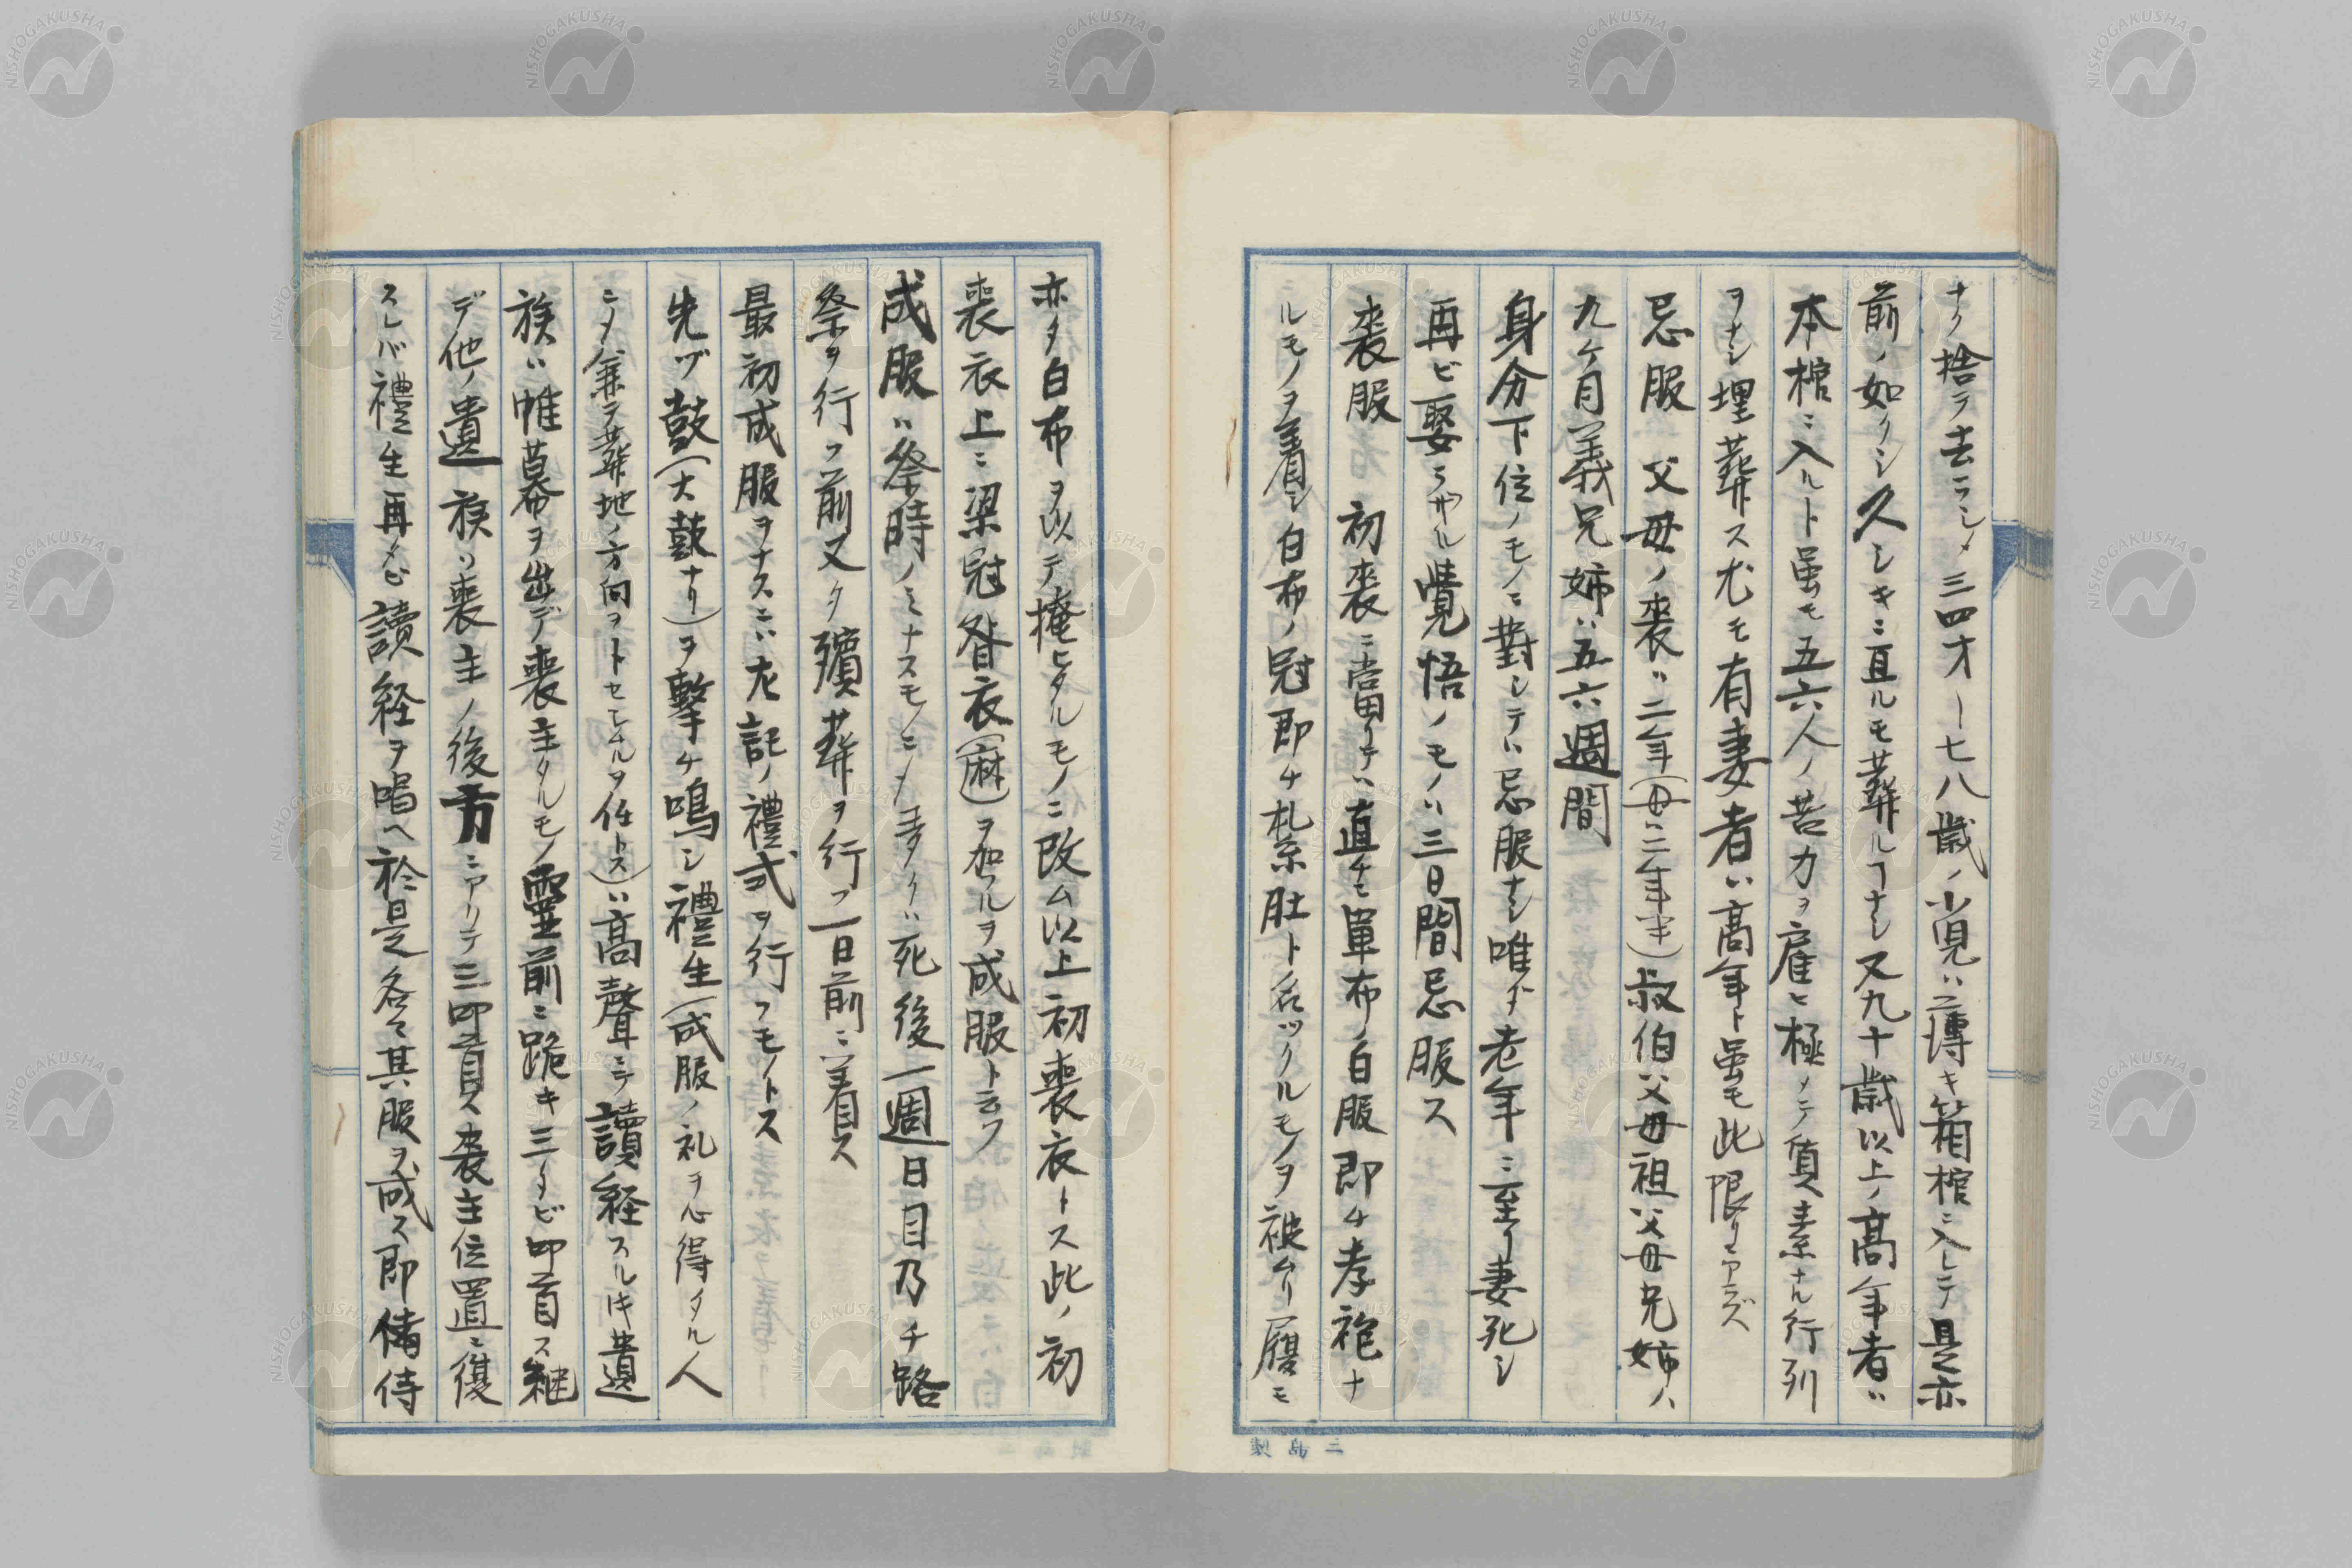 ナク捨ラ去ラシメ三四才ー七八歳ノ小児ハ薄キ箱棺ニ入レテ是亦
前ノ如クシ久シキニ亘ルモ葬ルヿナシ又九十歳以上ノ高年者ハ
本棺ニ入ルト虽モ五六人ノ苦力ヲ雇ヒ極メテ質素ナル行列
ヲナシ埋葬ス尤モ有妻者ハ高年ト虽モ此限リニアラズ
忌服 父母ノ喪ハ二年(母二年半)叔伯父母祖父母兄姉ハ
九ケ月義兄姉ハ五六週間
身分下位ノモノニ對シテハ忌服ナシ唯ダ老年ニ至リ妻死シ
再ビ娶ラザル覺悟ノモノハ三日間忌服ス
喪服 初喪ニ當リテハ直チニ單布ノ白服即チ孝袍ナ
ルモノヲ着シ白布ノ冠即チ札系肚ト名ツクルモノヲ被ムリ履モ
亦タ白布ヲ以テ掩ヒタルモノニ改ム以上初喪衣トス此ノ初
喪衣上ニ梁冠督衣(麻)ヲ加フルヲ成服ト云フ
成服ハ祭時ノミナスモノニメ夛クハ死後一週日目乃チ路
祭ヲ行フ前又タ殯葬ヲ行フ一日前ニ着ス
最初成服ヲナスニハ左記ノ禮式ヲ行フモノトス
先ヅ鼓(大鼓ナリ)ヲ撃チ鳴シ禮生(成服ノ礼ヲ心得タル人
ニメ兼ラ葬地ノ方向ヲトセシムルヲ任トス)ハ高聲ニテ讀経スルキ遺
族ハ帷幕ヲ出デ喪主タルモノ靈前ニ跪キ三タビ叩首ス継
デ他ノ遺族ハ喪主ノ後方ニアリテ三叩首ス喪主位置ニ復
スレバ禮生再ビ讀経ヲ唱ヘ於是各々其服ヲ成ス即備侍
三島製